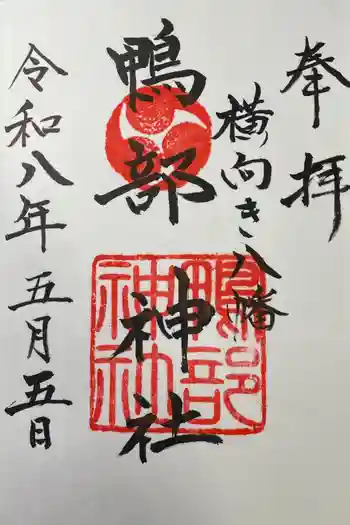 奉拝
横向き八幡
鴨部神社
鴨部神社
令和八年五月五日